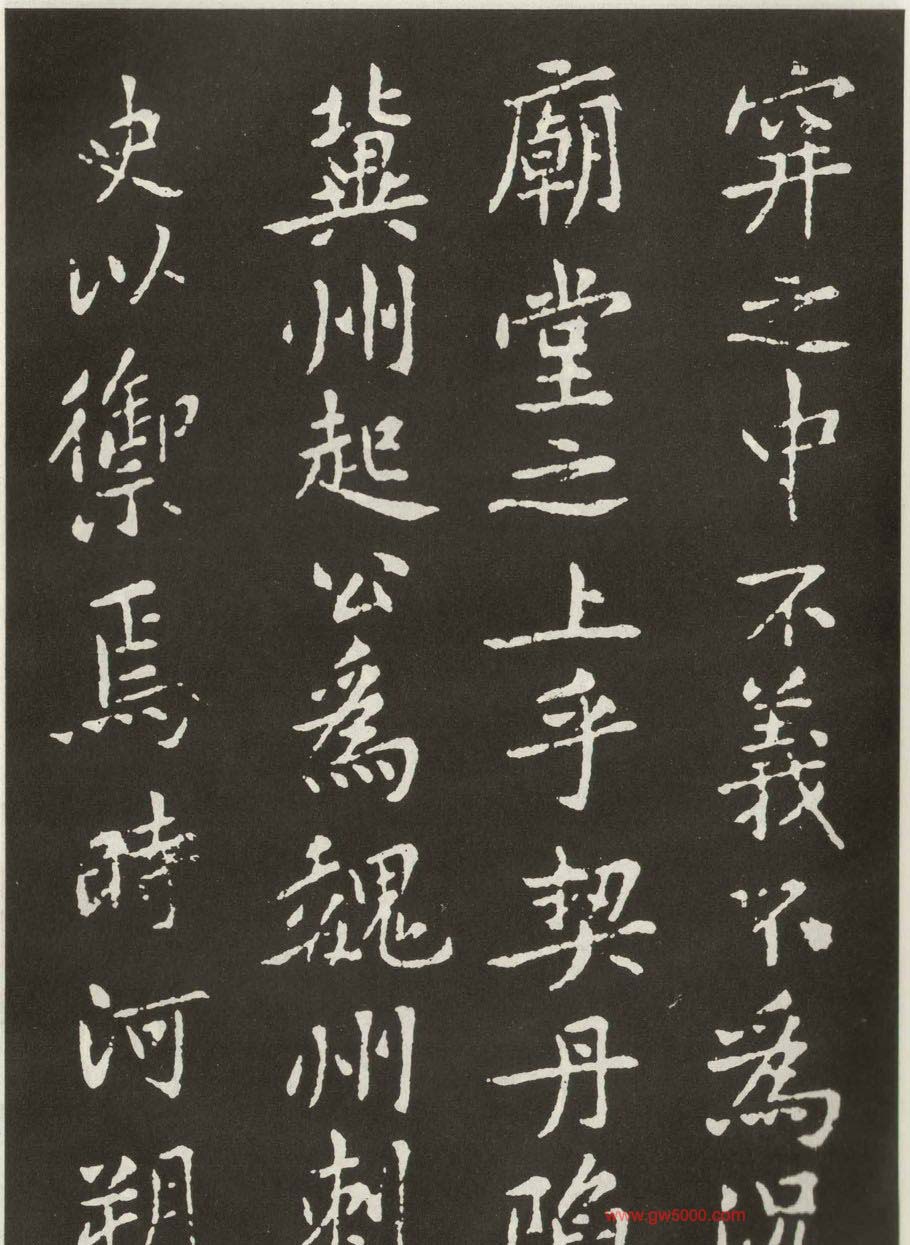 穽之中不義不為況
廟堂之上乎契丹陷
冀州起公為魏州刺
史以禦焉時河朔
www.gw5000.com